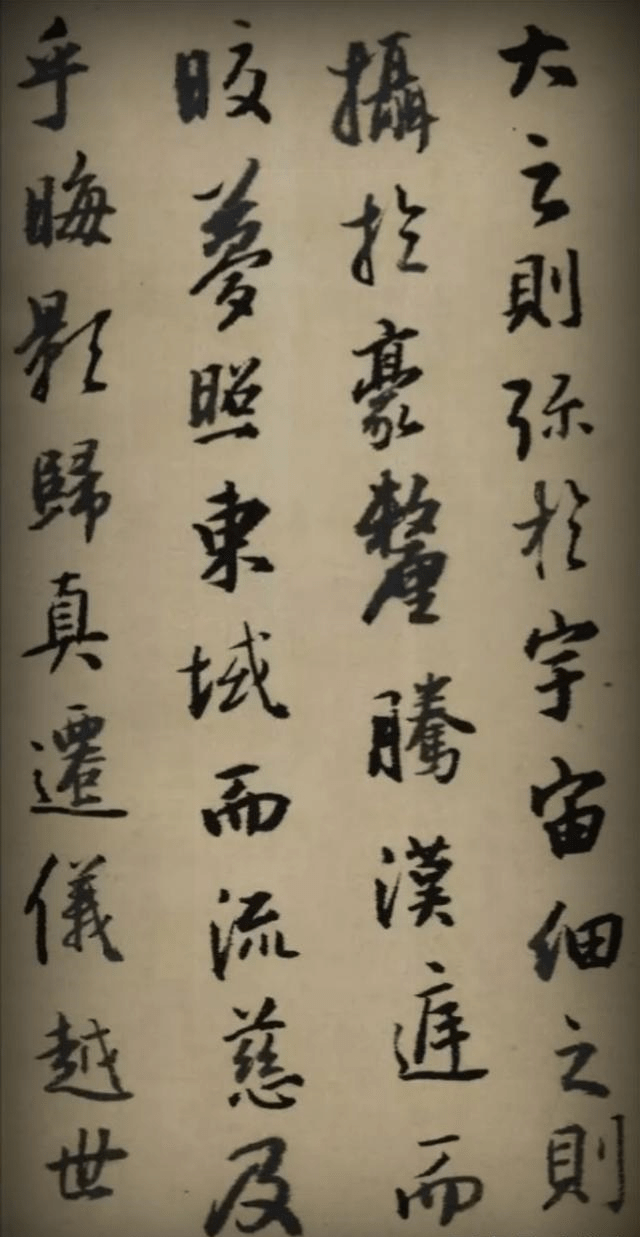 大之則弥於宇宙細之則
攝於豪釐騰漢庭而
晈夢照東域而流慈及
乎晦影歸真遷儀越世